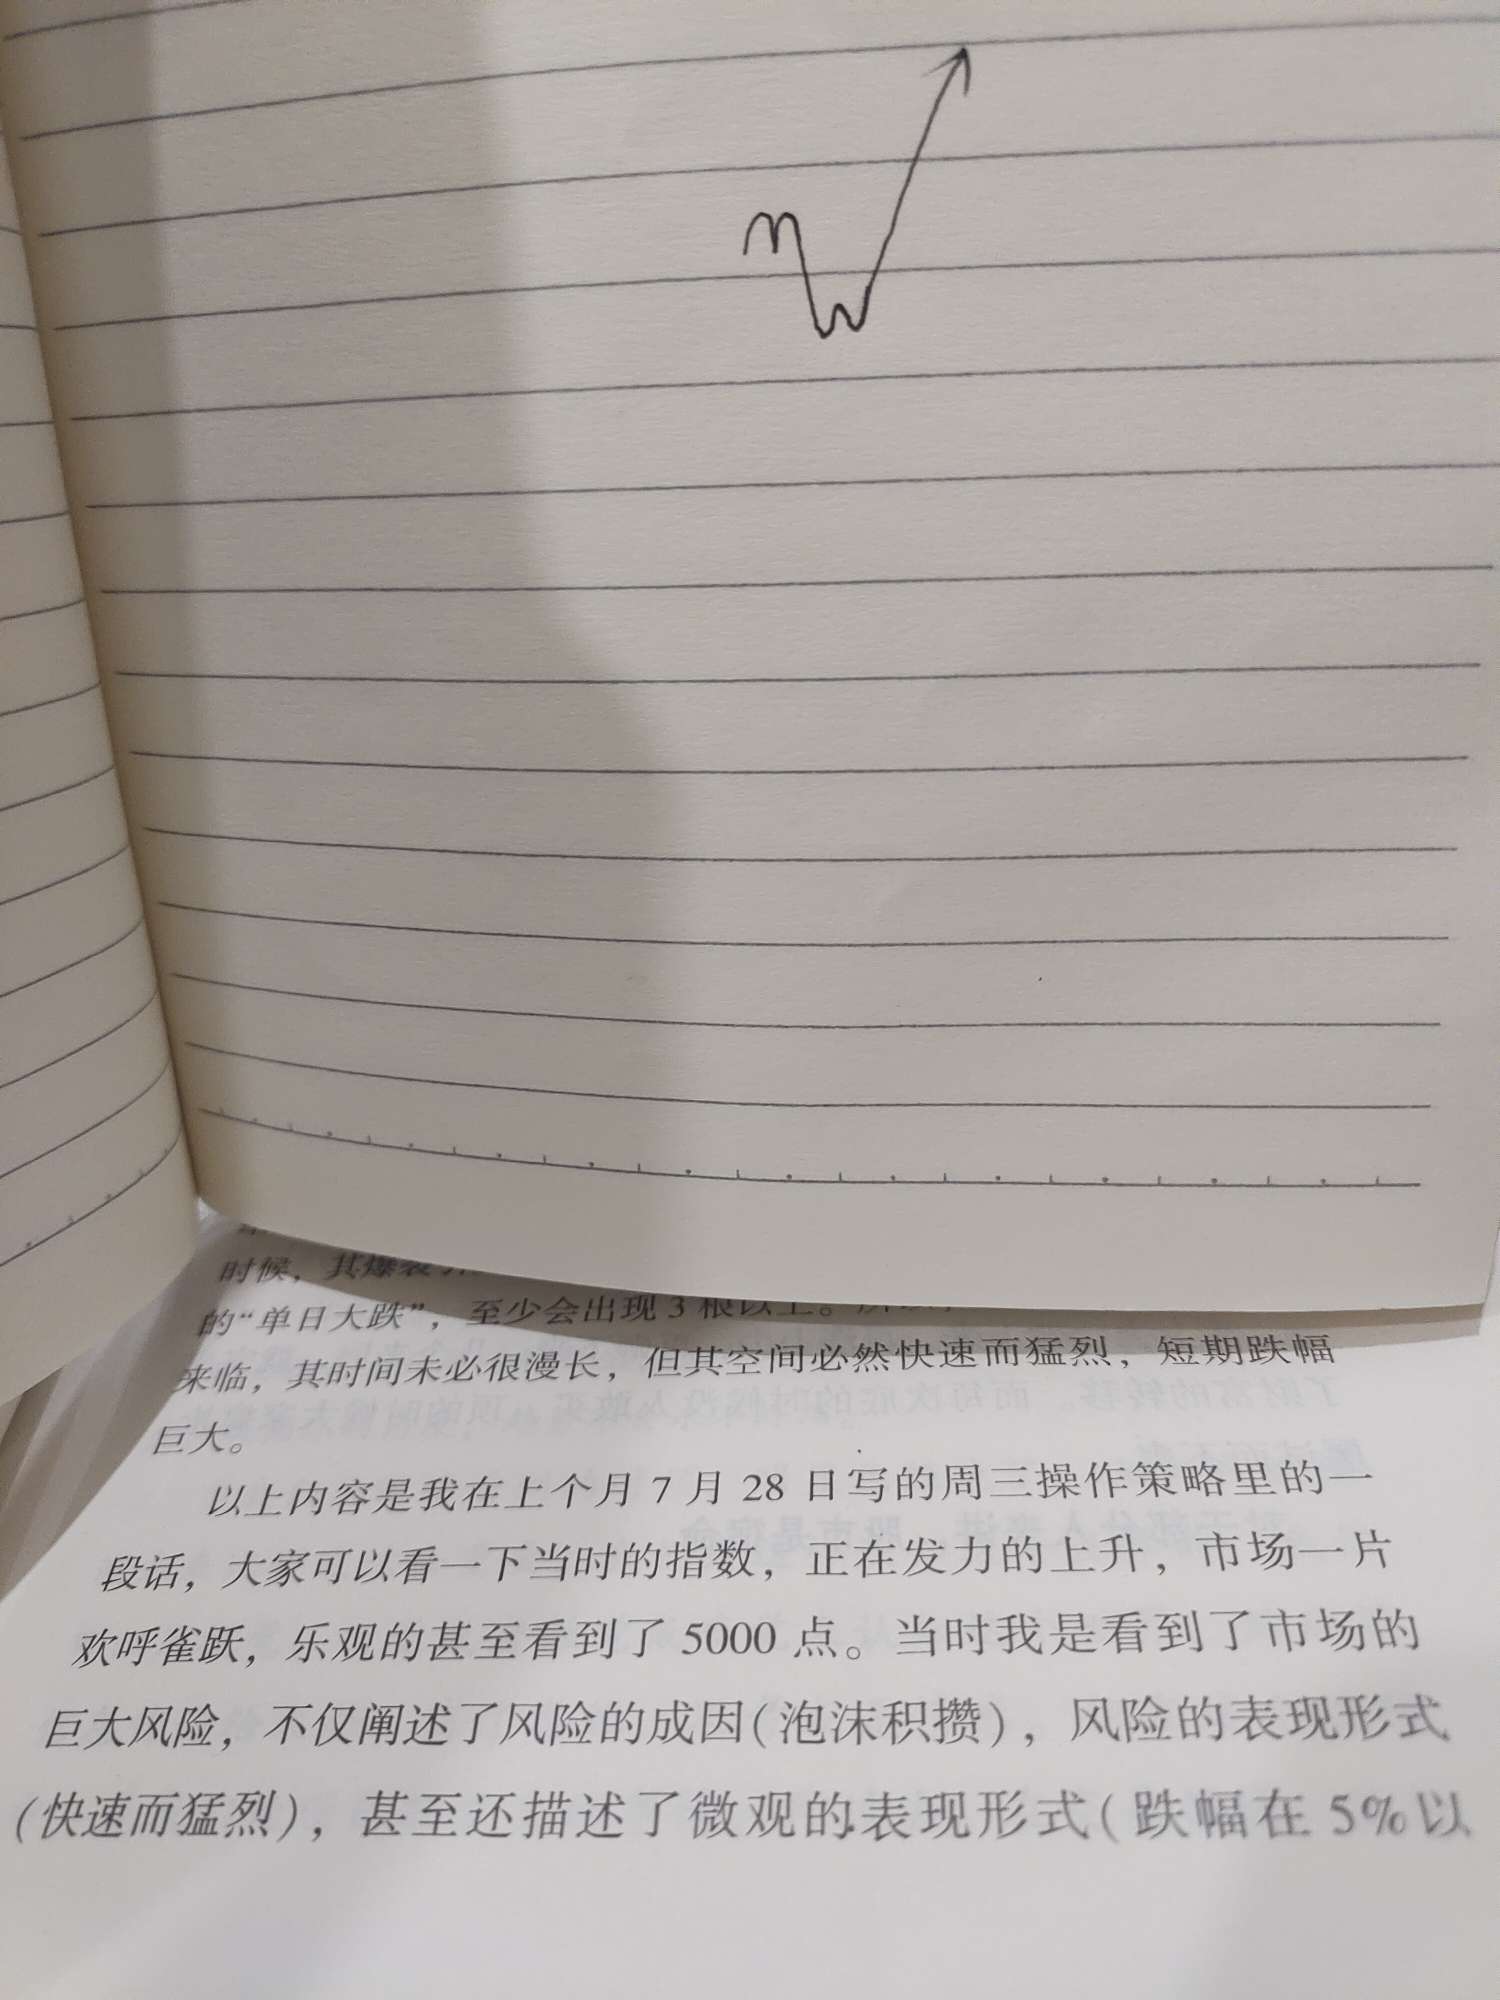 时候，其爆裂
的“单日大跌”，至少会出现3根以上。
来临，其时间未必很漫长，但其空间必然快速而猛烈，短期跌幅
巨大。
以上内容是我在上个月7月28日写的周三操作策略里的一
段话，大家可以看一下当时的指数，正在发力的上升，市场一片
欢呼雀跃，乐观的甚至看到了5000点。当时我是看到了市场的
巨大风险，不仅阐述了风险的成因(泡沫积攒)，风险的表现形式
(快速而猛烈)，甚至还描述了微观的表现形式(跌幅在5%以